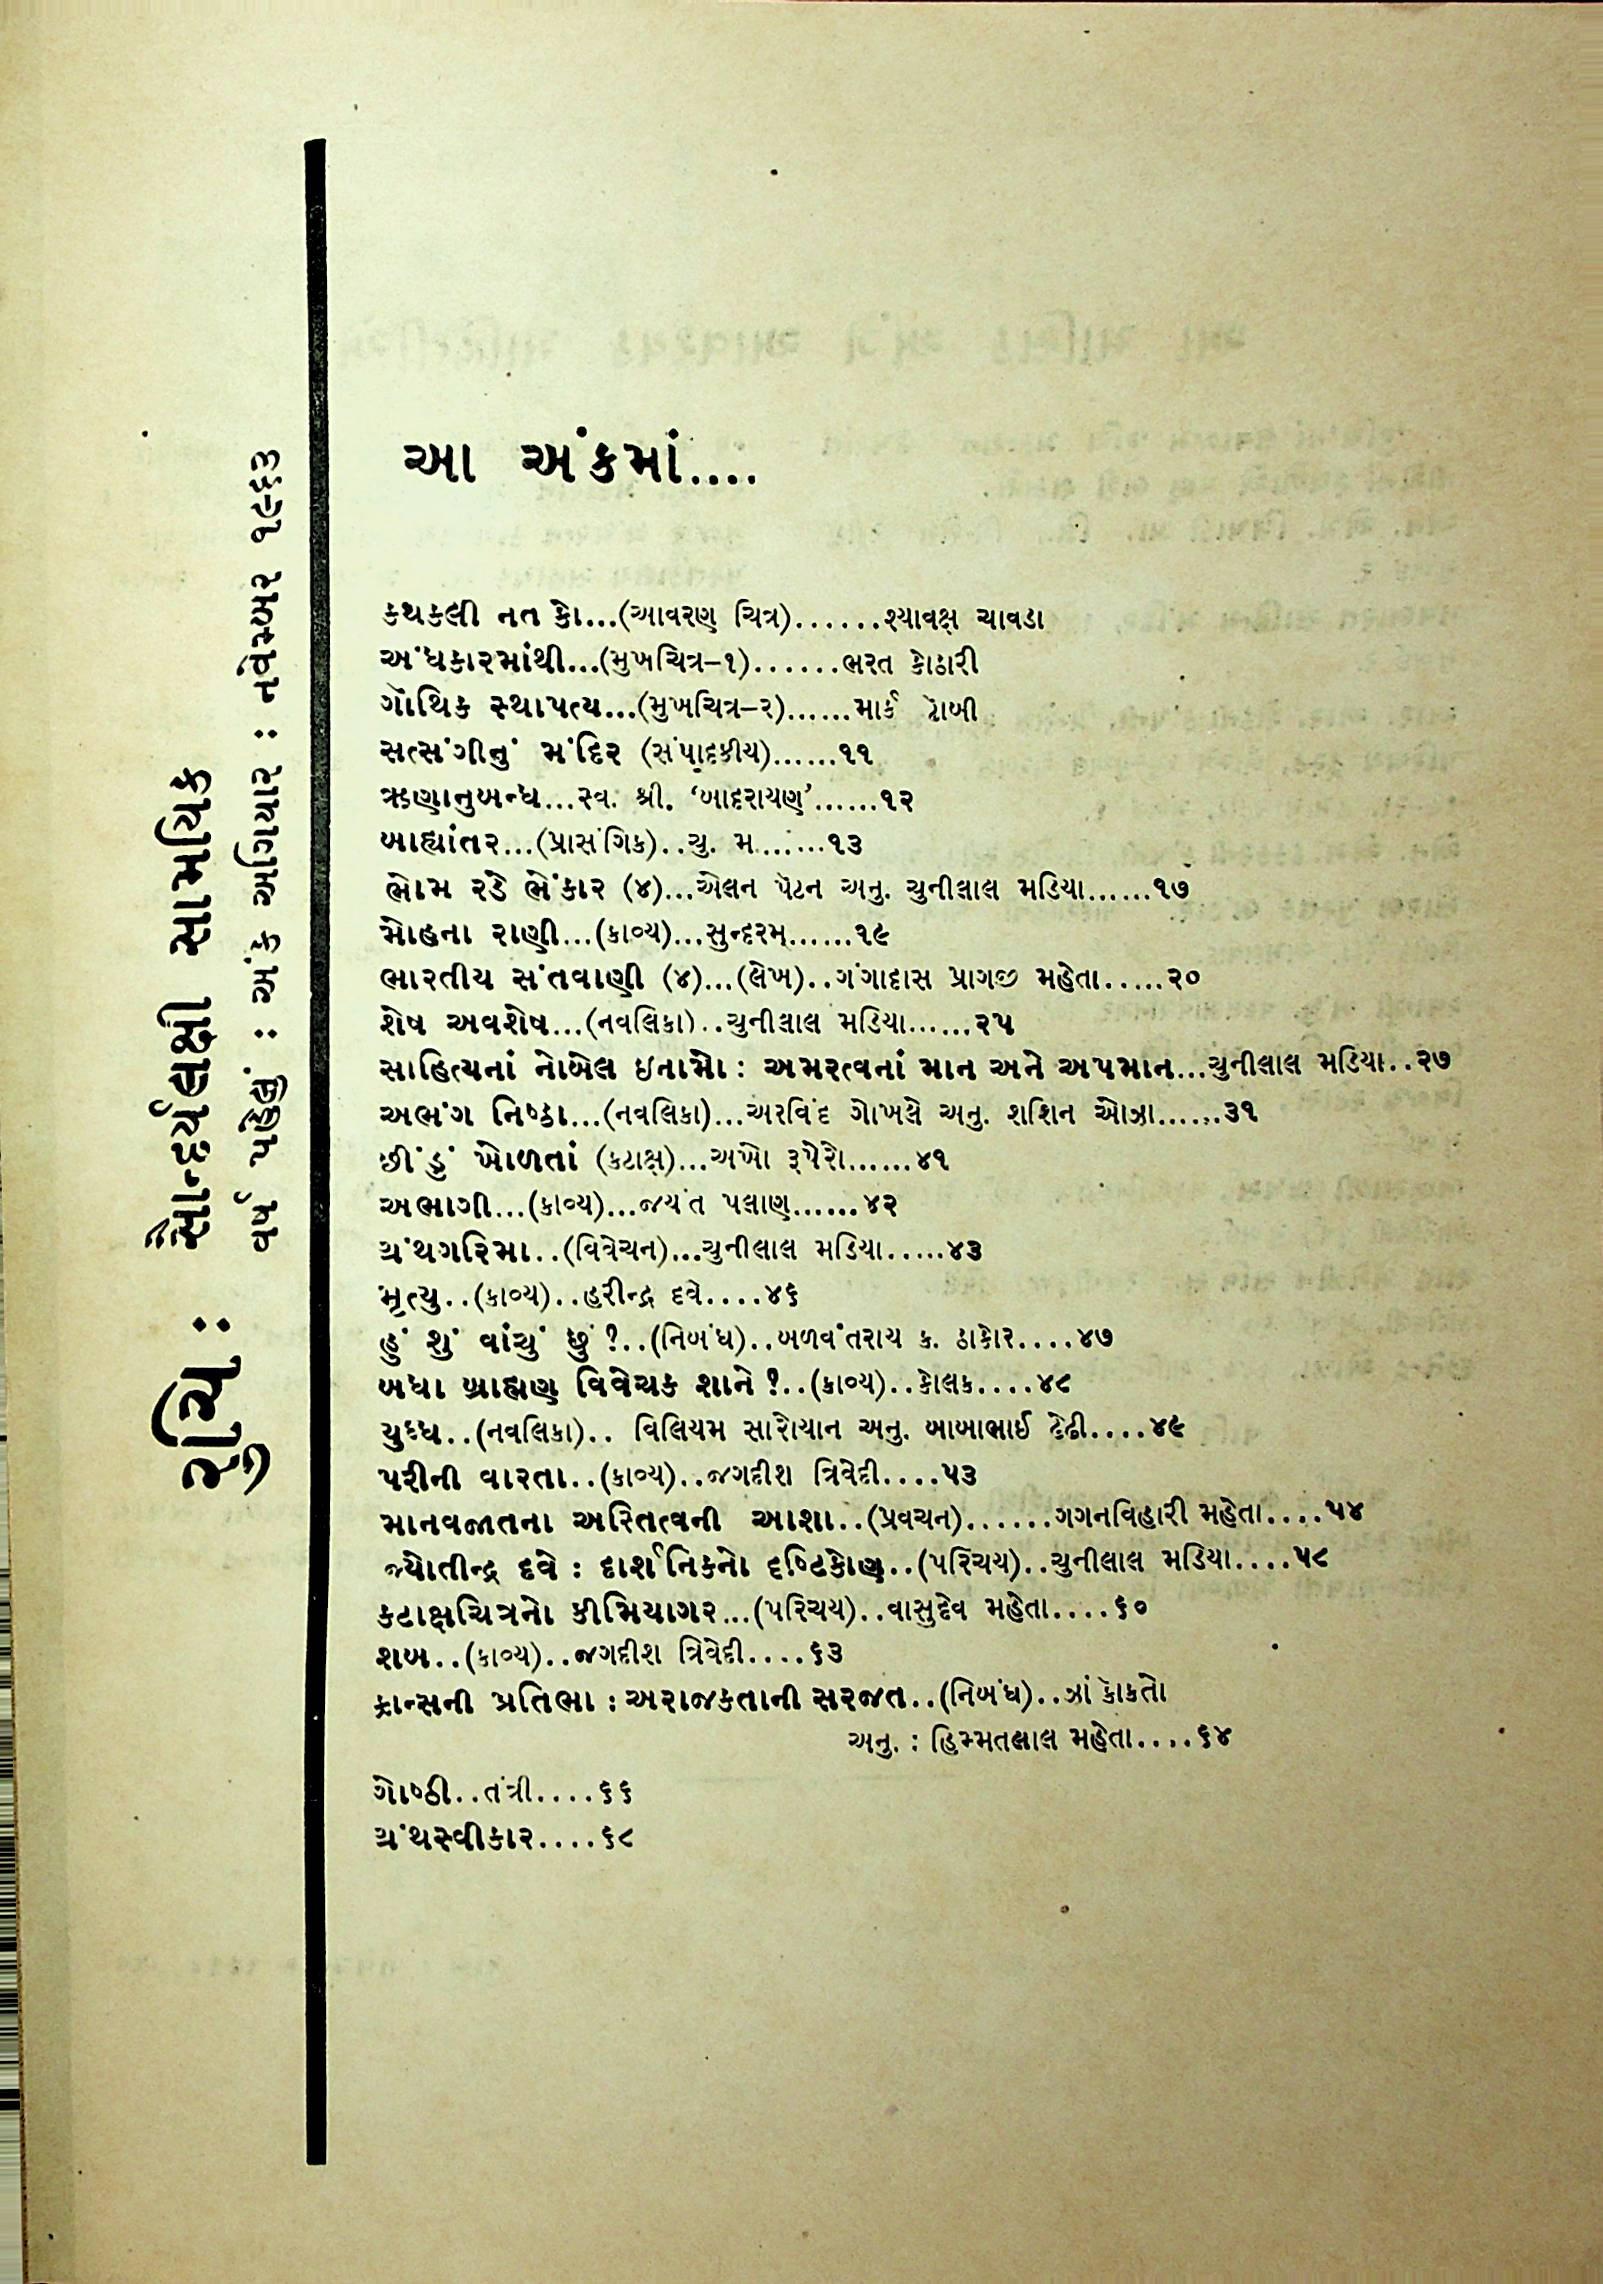 રુચિ : સૌન્દર્યલક્ષી સામયિક
વર્ષ પહેલું : અંક અગિયાર : નવેમ્બર ૧૯૬૩
આ અંકમાં....
કથકલી નર્તકો...(આવરણ ચિત્ર)......શ્યાવક્ષ ચાવડા
અંધકારમાંથી...(મુખચિત્ર–૧)......ભરત કોઠારી
ગૉથિક સ્થાપત્ય...(મુખચિત્ર–૨)......માર્ક ટોબી
સત્સંગીનું મંદિર (સંપાદકીય)......૧૧
ઋણાનુબન્ધ...સ્વ. શ્રી. ‘બાદરાયણ’......૧૨
બાહ્યાંતર...(પ્રાસંગિક)..ચુ. મ.......૧૩
ભોમ રડે ભેંકાર (૪)...એલન પૅટન અનુ. ચુનીલાલ મડિયા......૧૭
મોહના રાણી...(કાવ્ય)...સુન્દરમ્......૧૯
ભારતીય સંતવાણી (૪)...(લેખ)..ગંગાદાસ પ્રાગજી મહેતા.....૨૦
શેષ અવશેષ...(નવલિકા)..ચુનીલાલ મડિયા......૨૫
સાહિત્યનાં નોબેલ ઇનામો : અમરત્વનાં માન અને અપમાન...ચુનીલાલ મડિયા..૨૭
અભંગ નિષ્ઠા...(નવલિકા)...અરવિંદ ગોખલે અનુ. શશિન ઓઝા......૩૧
છીંડું ખોળતાં (કટાક્ષ)...અખો રૂપેરો......૪૧
અભાગી...(કાવ્ય)...જયંત પલાણ......૪૨
ગ્રંથગરિમા..(વિવેચન)...ચુનીલાલ મડિયા.....૪૩
મૃત્યુ..(કાવ્ય)..હરીન્દ્ર દવે....૪૬
હું શું વાંચું છું ?..(નિબંધ)..બળવંતરાય ક. ઠાકોર....૪૭
બધા બ્રાહ્મણ વિવેચક શાને ?..(કાવ્ય)..કોલક....૪૮
યુદ્ધ..(નવલિકા).. વિલિયમ સારોયાન અનુ. બાબાભાઈ દેઢી....૪૯
પરીની વારતા..(કાવ્ય)..જગદીશ ત્રિવેદી....૫૩
માનવજાતના અસ્તિત્વની આશા..(પ્રવચન)......ગગનવિહારી મહેતા....૫૪
જ્યોતીન્દ્ર દવે : દાર્શનિકનો દૃષ્ટિકોણ..(પરિચય)..ચુનીલાલ મડિયા....૫૮
કટાક્ષચિત્રનો કીમિયાગર...(પરિચય)..વાસુદેવ મહેતા....૬૦
શબ..(કાવ્ય)..જગદીશ ત્રિવેદી....૬૩
ફ્રાન્સની પ્રતિભા : અરાજકતાની સરજત..(નિબંધ)..ઝાં કોકતો
અનુ. : હિમ્મતલાલ મહેતા....૬૪
ગોષ્ઠી..તંત્રી....૬૬
ગ્રંથસ્વીકાર....૬૮